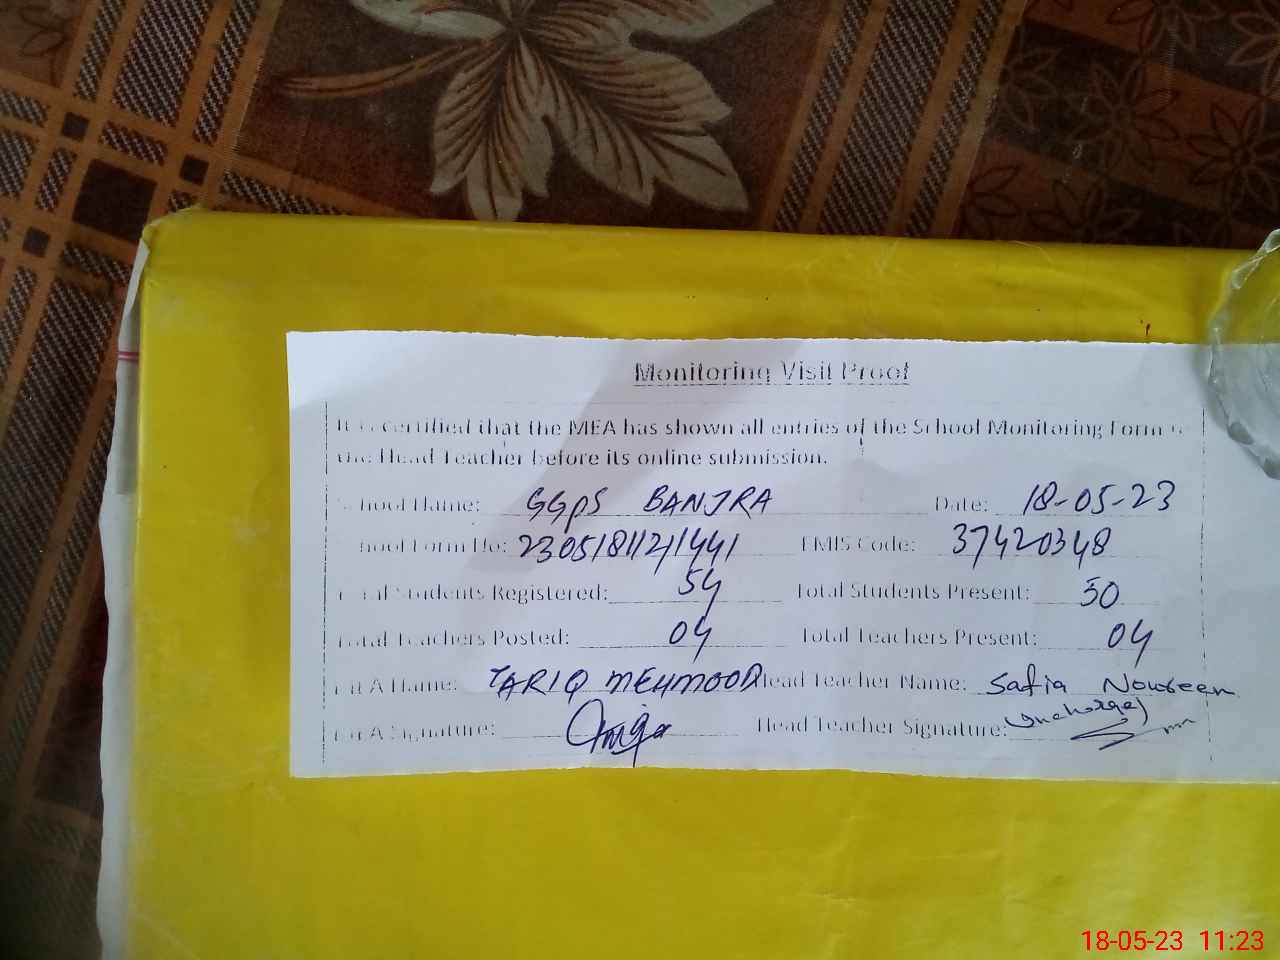 Monitoring Visit Proof
It is certified that the MEA has shown all entries of the School Monitoring Form to
the Head Teacher before its online submission.
School Name: GGPS BANJRA Date: 18-05-23
School Form No: 23051811211441 EMIS Code: 37420348
Total Students Registered: 54 Total Students Present: 50
Total Teachers Posted: 04 Total Teachers Present: 04
MEA Name: TARIQ MEHMOOD Head Teacher Name: Safia Nowreen
MEA Signature: Head Teacher Signature:
18-05-23 11:23